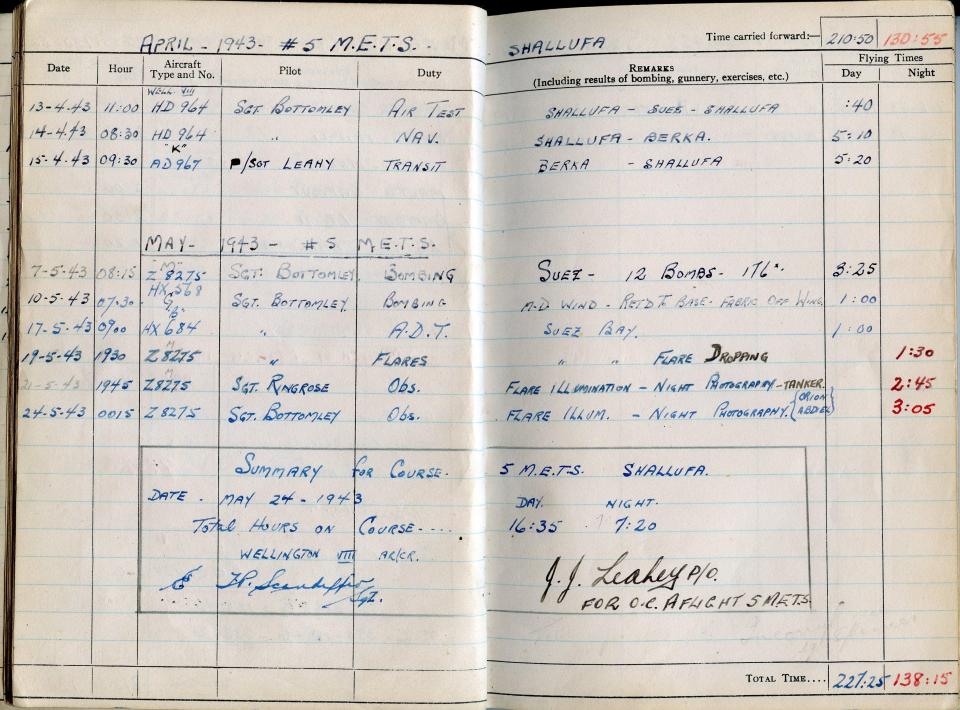 APRIL - 1943 - #5 M.E.T.S. SHALLUFA Time carried forward:— 210:50 130:55
Date Hour Aircraft Type and No. Pilot Duty REMARKS (Including results of bombing, gunnery, exercises, etc.) Flying Times Day Night
WELL. VIII
13-4-43 11:00 HD 964 SGT BOTTOMLEY AIR TEST SHALLUFA - SUEZ - SHALLUFA :40
14-4-43 08:30 HD 964 " NAV. SHALLUFA - BERKA. 5:10
"K"
15-4-43 09:30 AD 967 P/SGT LEAHY TRANSIT BERKA - SHALLUFA 5:20
MAY - 1943 - #5 M.E.T.S.
7-5-43 08:15 Z 8275 SGT. BOTTOMLEY BOMBING SUEZ - 12 BOMBS - 176x. 3:25
HX 568
10-5-43 07:30 "G" SGT. BOTTOMLEY BOMBING A-D WIND - RET'D TO BASE - FABRIC OFF WING 1:00
"B"
17-5-43 0900 HX 684 " A.D.T. SUEZ BAY. 1:00
19-5-43 1930 Z 8275 " FLARES " " FLARE DROPPING 1:30
21-5-43 1945 Z8275 SGT. RINGROSE Obs. FLARE ILLUMINATION - NIGHT PHOTOGRAPHY - TANKER. 2:45
24-5-43 0015 Z 8275 SGT. BOTTOMLEY Obs. FLARE ILLUM. - NIGHT PHOTOGRAPHY. {ORION ABDEL} 3:05
SUMMARY FOR COURSE. 5 M.E.T.S. SHALLUFA.
DATE - MAY 24 - 1943 DAY. NIGHT.
TOTAL HOURS ON COURSE.... 16:35 7:20
WELLINGTON VIII AR/CR.
Sgt. J.J. Leahey P/O.
FOR O.C. A FLIGHT 5 METS.
TOTAL TIME.... 227:25 138:15